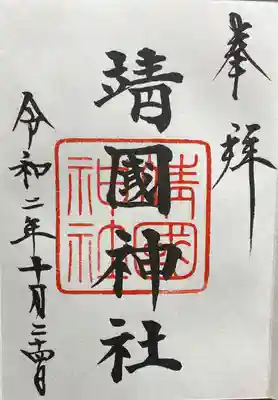 奉拝
靖國神社
靖國
神社
令和二年十月二十四日